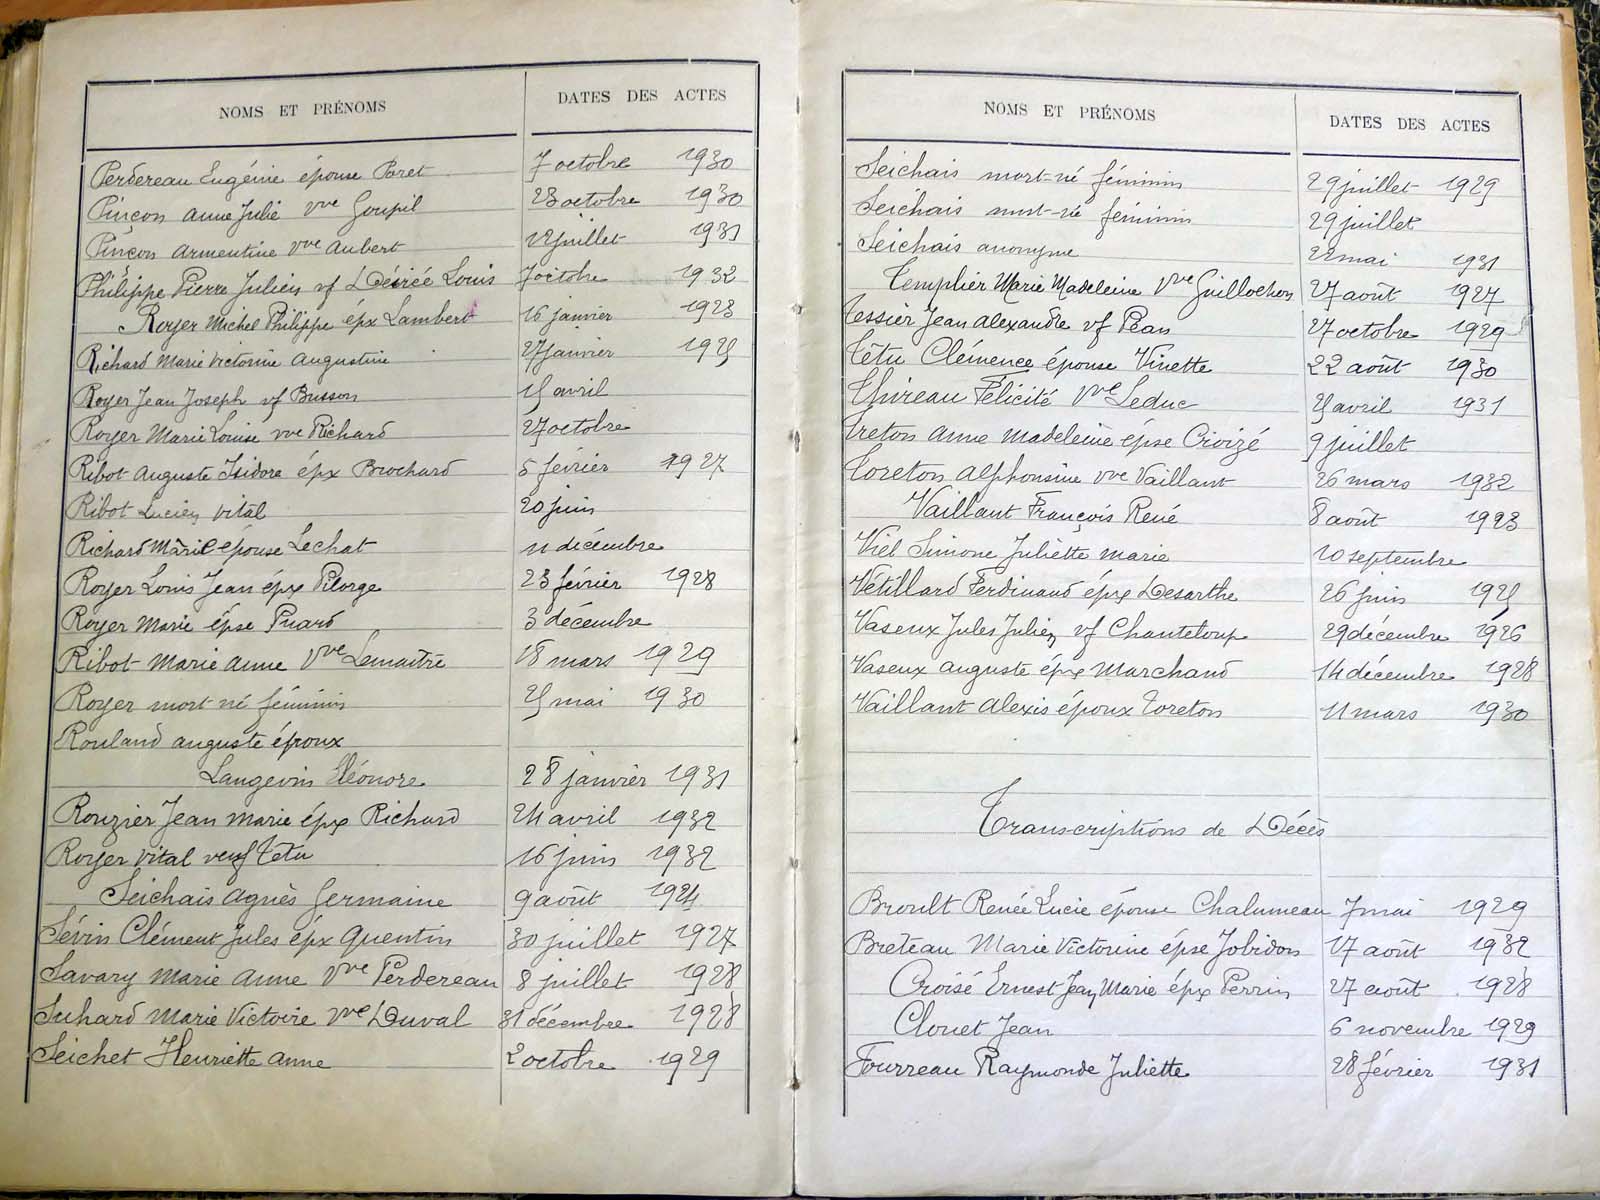 NOMS ET PRÉNOMS DATES DES ACTES
Perdereau Eugénie épouse Poret 7 octobre 1930
Pinçon Anne Julie vve Goupil 23 octobre 1930
Pinçon Armentine vve Aubert 12 juillet 1931
Philippe Pierre Julien vf Désirée Louis 7 octobre 1932
Royer Michel Philippe epx Lambert 16 janvier 1923
Richard Marie Victorine Augustine 27 janvier 1925
Royer Jean Joseph vf Busson 15 avril
Royer Marie Louise vve Richard 27 octobre
Ribot Auguste Isidore épx Brochard 5 février 1927
Ribot Lucien Vital 20 juin
Richard Marie épouse Lechat 11 décembre
Royer Louis Jean épx Pilorge 23 février 1928
Royer Marie épse Piard 3 décembre
Ribot Marie Anne Vve Lemaitre 18 mars 1929
Royer mort-né féminin 25 mai 1930
Rouland Auguste époux
Langevin Eléonore 28 janvier 1931
Rouzier Jean Marie épx Richard 24 avril 1932
Royer Vital veuf Tétu 16 juin 1932
Seichais Agnès Germaine 9 août 1924
Sévin Clément Jules épx Quentin 30 juillet 1927
Savary Marie Anne Vve Perdereau 8 juillet 1928
Suhard Marie Victoire Vve Duval 31 décembre 1928
Seichet Henriette Anne 2 octobre 1929
NOMS ET PRÉNOMS DATES DES ACTES
Seichais mort-né féminin 29 juillet 1929
Seichais mort-né féminin 29 juillet
Seichais anonyme 22 mai 1931
Templier Marie Madeleine Vve Guillochon 27 août 1927
Tessier Jean Alexandre vf Péan 27 octobre 1929
Têtu Clémence épouse Vinette 22 août 1930
Thireau Félicité Vve Leduc 25 avril 1931
Treton Anne Madeleine épse Croizé 9 juillet
Toreton Alphonsine vve Vaillant 26 mars 1932
Vaillant François René 8 août 1923
Viel Simone Juliette Marie 10 septembre
Vétillard Ferdinand épx Desarthe 26 juin 1925
Vaseux Jules Julien vf Chanteloup 29 décembre 1926
Vaseux Auguste épx Marchand 14 décembre 1928
Vaillant Alexis époux Toreton 11 mars 1930
Transcriptions de Décès
Broult Renée Lucie épouse Chalumeau 7 mai 1929
Breteau Marie Victorine épse Jobidon 17 août 1932
Croisé Ernest Jean Marie épx Perrin 27 août 1928
Clouet Jean 6 novembre 1929
Fourreau Raymonde Juliette 28 février 1931